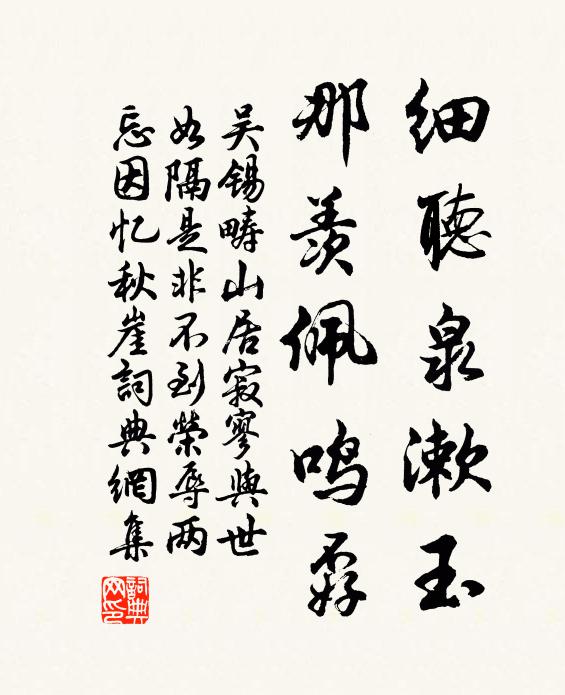 细聽泉漱玉
那羡佩鸣
吴锡疇山居寂寥與世
如隔是非不到榮辱两
忘因忆秋崖詞典網集
詞典网印